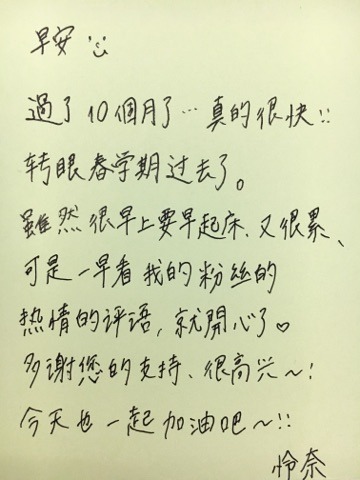 早安 ¨̮
過了10個月了…真的很快!!
转眼春学期过去了。
雖然很早上要早起床、又很累、
可是一早看我的粉絲的
热情的评语,就開心了♡
多謝您的支持、很高兴～!
今天也一起加油吧～!!
怜奈